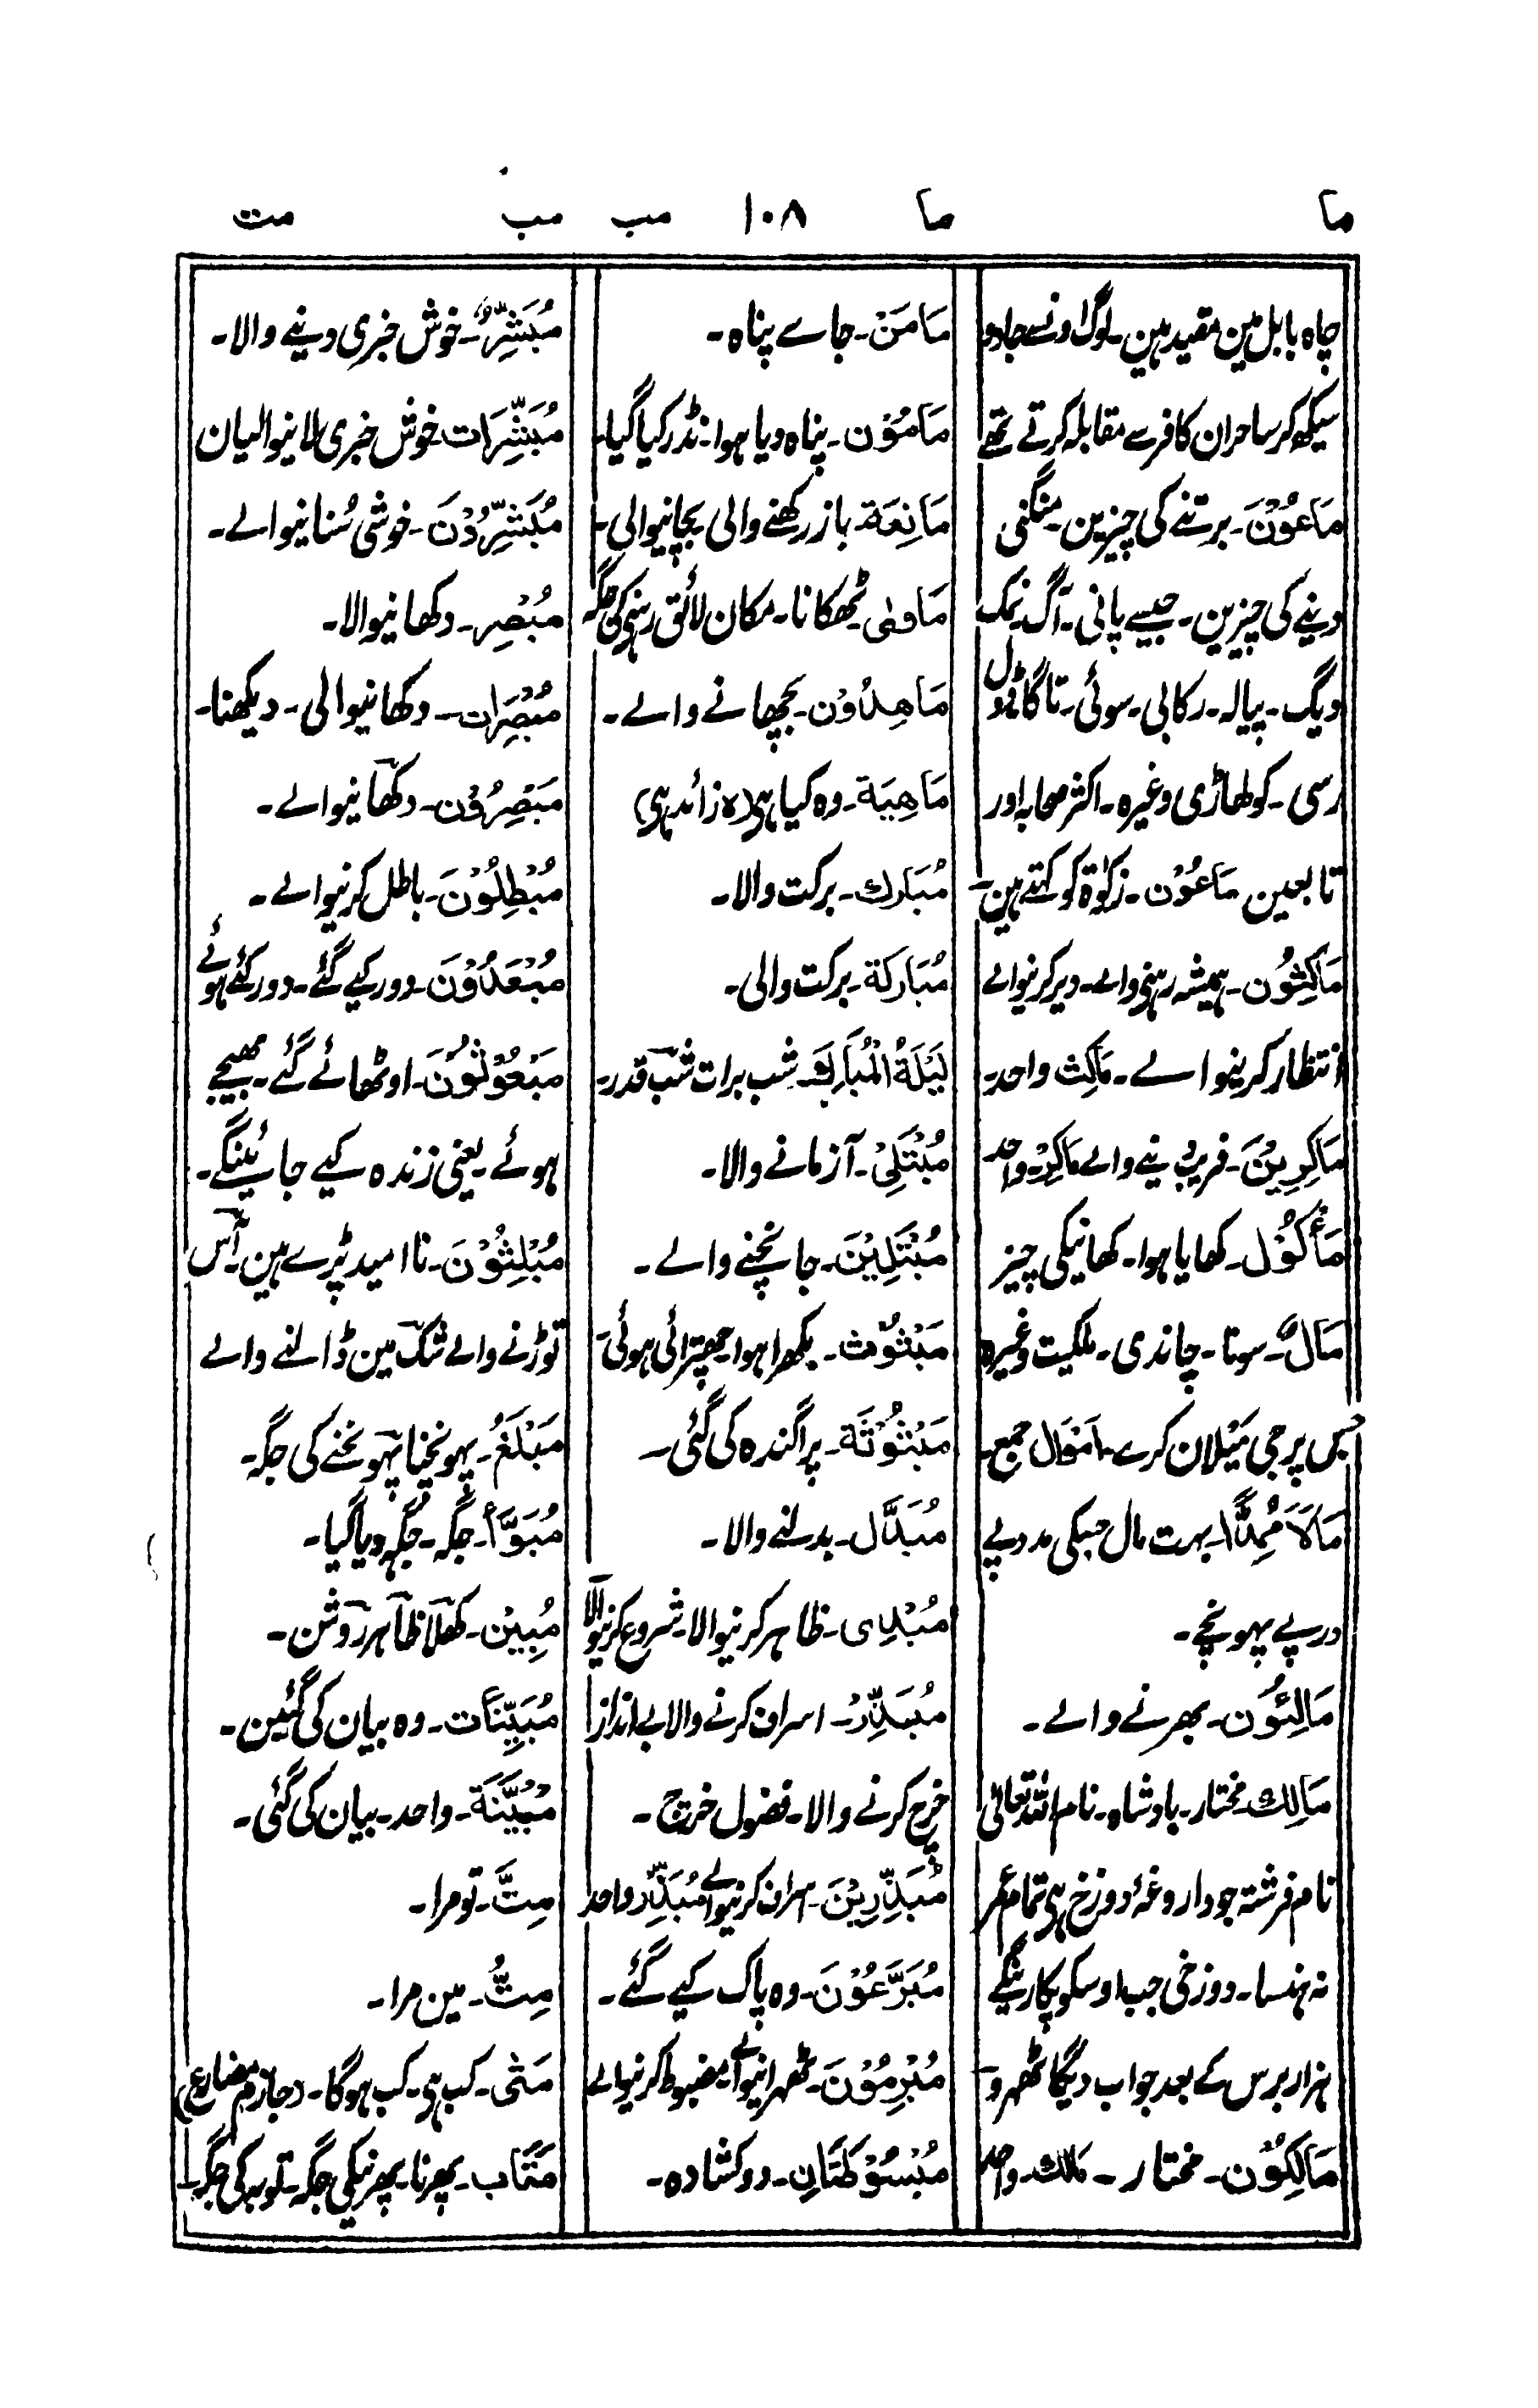 ما ما ۱۰۸ مب مب مت
چاہ بابل مین مقید ہین۔ لوگ اونسے جادو
سیکھ کر ساحران کافر سے مقابلہ کرتے تھے
مَاعُوْنَ۔ برتنے کی چیزین۔ منگنی
دینے کی چیزین۔ جیسے پانی۔ آگ۔ نمک
دیگ۔ پیالہ۔ رکابی۔ سوئی۔ تاگا۔ ڈول
رسی۔ کولھاڑی وغیرہ۔ اکثر صحابہ اور
تابعین مَاعُوْن۔ زکوٰۃ کو کہتے ہین۔
مَاكِثُوْن۔ ہمیشہ رہنی والے۔ دیر کرنیوالے
انتظار کرینوالے۔ مَاكِث واحد۔
مَاكِرِيْنَ۔ فریب دینے والے مَاكِرْ۔ واحد
مَأْكُوْل۔ کھایا ہوا۔ کھانیکی چیز
مَالٌ۔ سونا۔ چاندی۔ ملکیت وغیرہ
جس پر جی مَیْلان کرے۔ اَمْوَال جمع۔
مَالاً مُّمِدًّا۔ بہت مال جسکی مدد پے
درپے پہونچے۔
مَالِئُوْن۔ بھرنے والے۔
مَالِك۔ مختار۔ بادشاہ۔ نام اللہ تعالیٰ
نام فرشتہ جو داروغۂ دوزخ ہی تمام عمر
نہ ہنسا۔ دوزخی جب اوسکو پکارینگے
ہزار برس کے بعد جواب دیگا ٹھہرو۔
مَالِكُوْن۔ مختار۔ مَالك۔ واحد
مَامَنْ۔ جاے پناہ۔
مَامُوْن۔ پناہ دیا ہوا۔ نڈر کیا گیا۔
مَانِعَة۔ باز رکھنے والی بچانیوالی۔
مَاوىٰ۔ ٹھکانا۔ مکان لائق رہنی کی جگہ
مَاهِدُوْن۔ بچھانے والے۔
مَاهِيَة۔ وہ کیا ہی (ہ زائد ہی)
مُبَارك۔ برکت والا۔
مُبَارَكَة۔ برکت والی۔
لَيْلَةُ الْمُبَارَكَة۔ شب برات شب قدر۔
مُبْتَلِىْ۔ آزمانے والا۔
مُبْتَلِيْنَ۔ جانچنے والے۔
مَبْثُوْث۔ بکھرا ہوا۔ چھترائی ہوئی۔
مَبْثُوْثَة۔ پراگندہ کی گئی۔
مُبَدَّل۔ بدلنے والا۔
مُبْدِى۔ ظاہر کرنیوالا۔ شروع کرنیوالا
مُبَذِّرْ۔ اسراف کرنے والا بے انداز
خرج کرنے والا۔ فضول خرج۔
مُبَذِّرِيْنَ۔ اسراف کرنیوالے مُبَذِّر واحد
مُبَرَّءُوْنَ۔ وہ پاک کیے گئے۔
مُبْرِمُوْنَ۔ ٹھہرانیوالے مضبوط کرنیوالے
مَبْسُوْطَتَانِ۔ دو کشادہ۔
مُبَشِّرٌ۔ خوش خبری دینے والا۔
مُبَشِّرَات خوش خبری لانیوالیان
مُبَشِّرُوْنَ۔ خوشی سُنانیوالے۔
مُبْصِر۔ دکھانیوالا۔
مُبْصِرَات۔ دکھانیوالی۔ دیکھنا۔
مَبْصِرُوْن۔ دکھانیوالے۔
مُبْطِلُوْنَ۔ باطل کرنیوالے۔
مُبْعَدُوْنَ۔ دور کیے گئے۔ دور کئے ہوئے
مَبْعُوْثُوْنَ۔ اوٹھائے گئے۔ بھیجے
ہوئے یعنی زندہ کیے جائینگے۔
مُبْلِثُوْنَ۔ نا امید پڑے ہین۔ آس
توڑنے والے شک مین ڈالنے والے
مَبْلَغُ۔ پہونچنا پہونچنے کی جگہ۔
مُبَوَّأ۔ جگہ۔ جگہ دیا گیا۔
مُبِيْن۔ کھلا ظاہر روشن۔
مُبَيِّنَات۔ وہ بیان کی گئین۔
مُبَيَّنَة۔ واحد۔ بیان کی گئی۔
مِتَّ۔ تو مرا۔
مِتُّ۔ مین مرا۔
مَتٰى۔ کب ہی۔ کب ہوگا۔ (جازم مضارع)
مَتَاب۔ پھرنا۔ پھرنیکی جگہ۔ توبہ کی جگہ۔